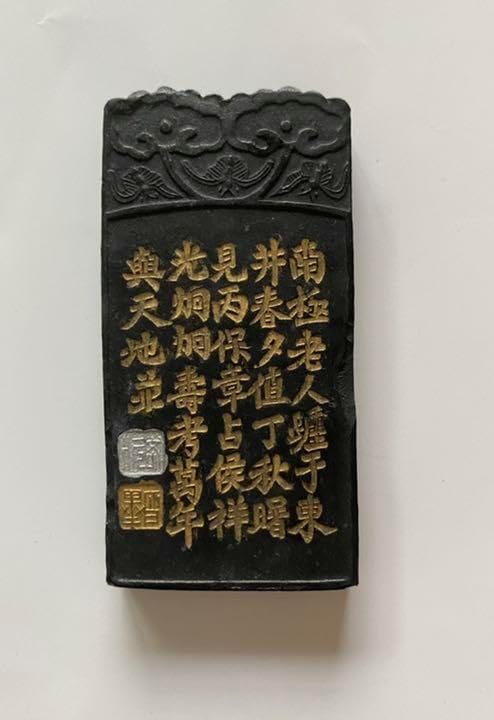 南極老人躔于東
井春夕值丁秋曙
見丙保章占侯祥
光炯炯壽考萬年
與天地並